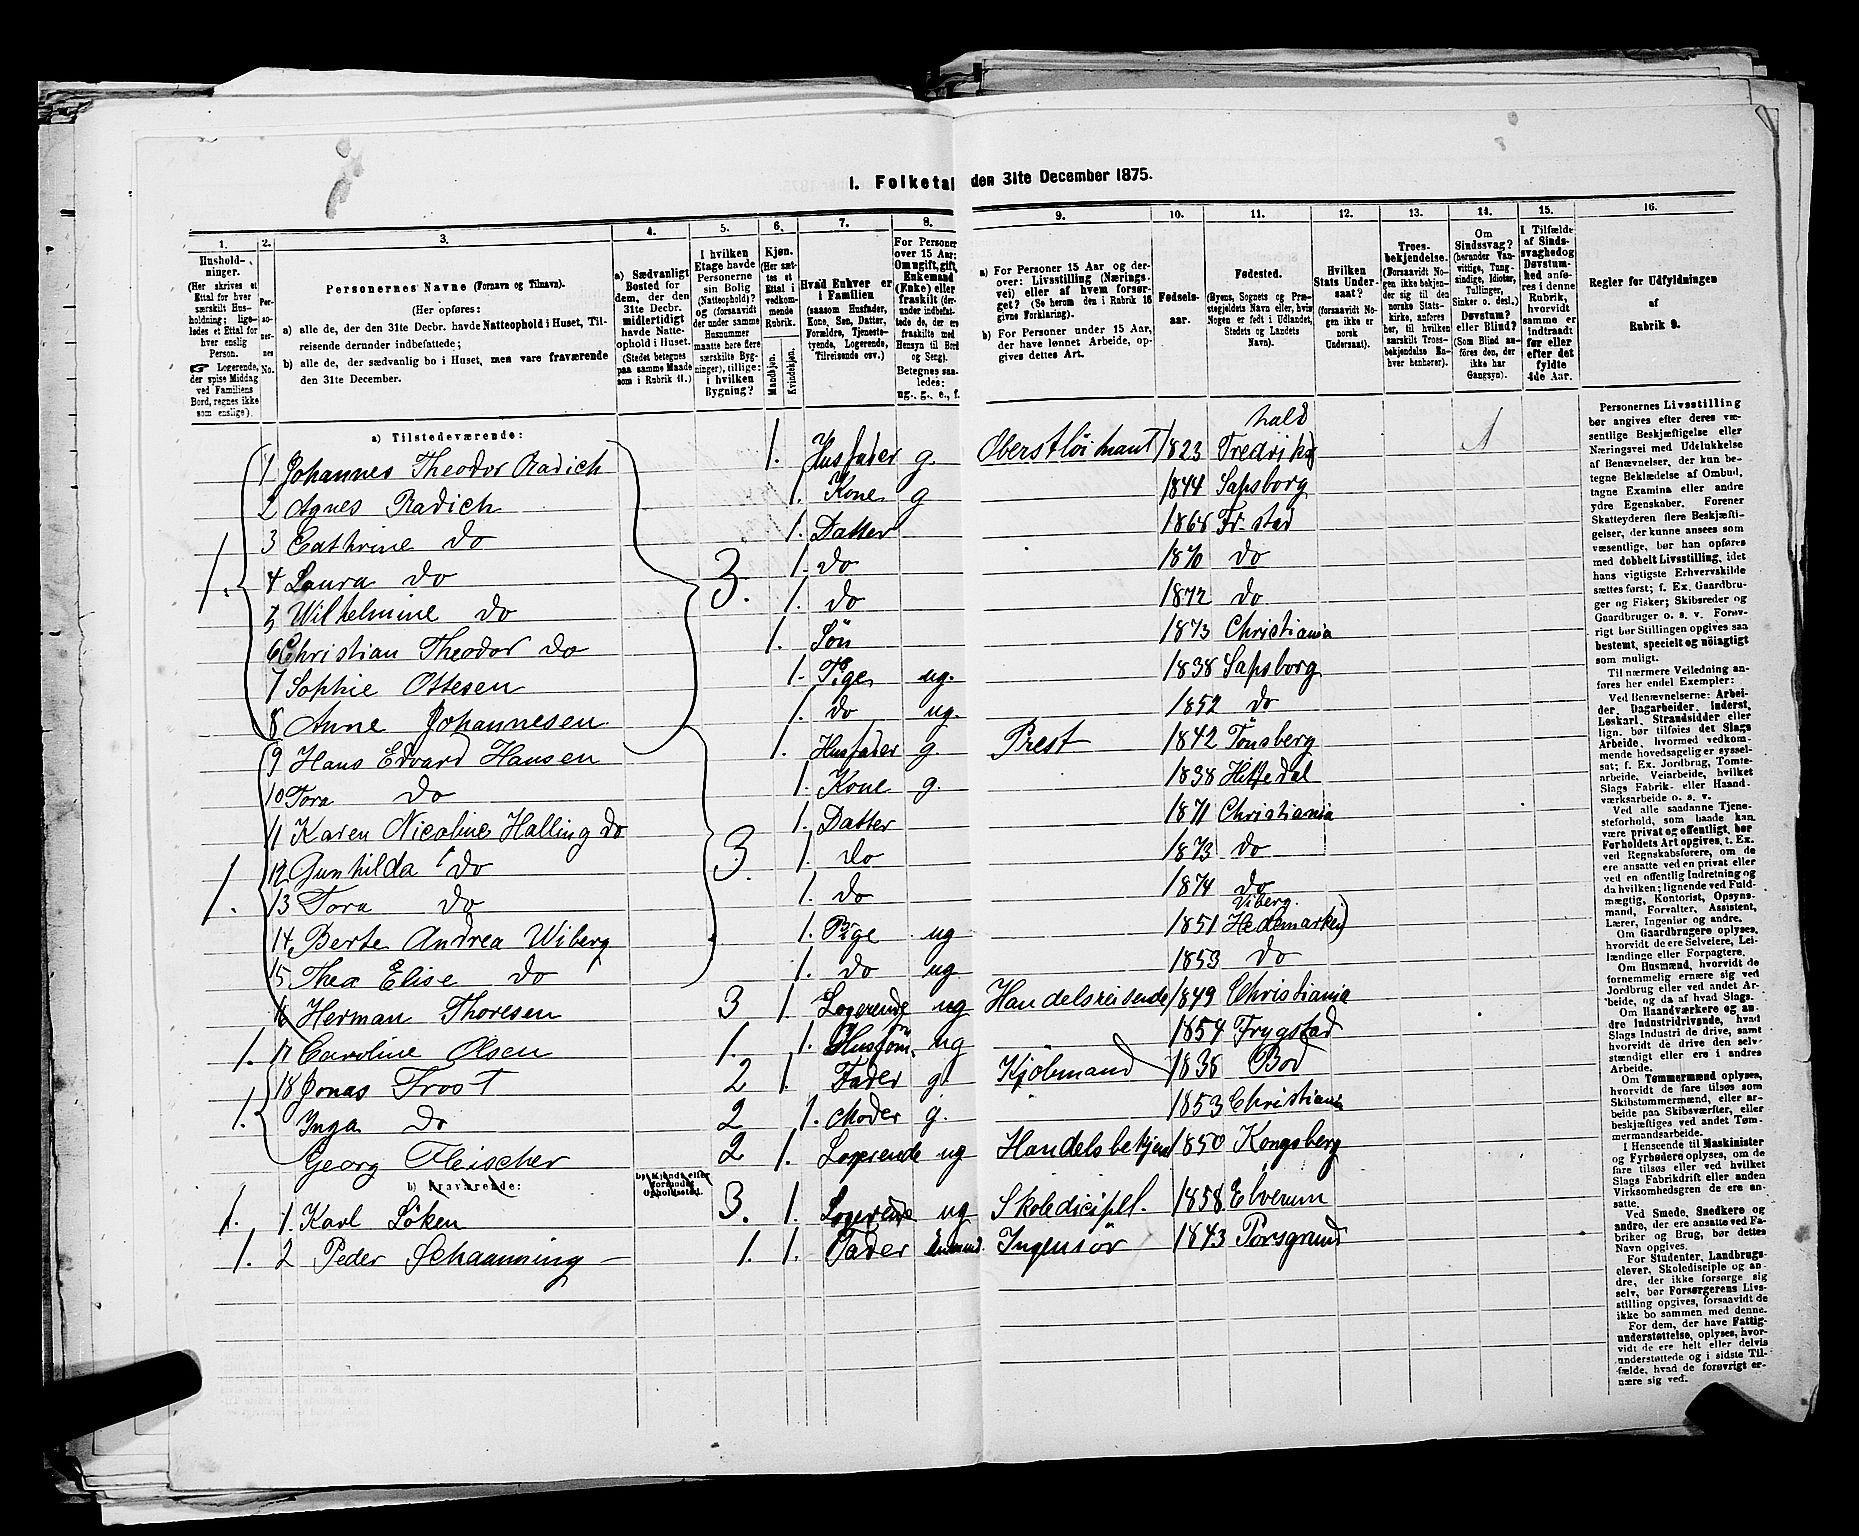 1. Folketal den 31te December 1875.
1. 2. 3. 4. 5. 6. 7. 8. 9. 10. 11. 12. 13. 14. 15. 16.
Hushold-
ninger.
(Her skrives et
Ettal for hver
særskilt Hus-
holdning; lige-
ledes et Ettal for
hver enslig
Person.
☞ Logerende,
der spise Middag
ved Familiens
Bord, regnes ikke
som enslige).
Per-
so-
ner-
nes
No.
Personernes Navne (Fornavn og Tilnavn).
(Her opføres:
a) alle de, der den 31te Decbr. havde Natteophold i Huset, Til-
reisende derunder indbefattede;
b) alle de, der sædvanlig bo i Huset, men vare fraværende
den 31te December.
a) Sædvanligt
Bosted for
dem, der den
31te Decbr.
midlertidigt
havde Natte-
ophold i Huset.
(Stedet betegnes
paa samme Maade
som i Rubrik 11.)
I hvilken
Etage havde
Personerne
sin Bolig
(Natteophold)?
og (forsaavidt
der under samme
Husnummer
maatte høre flere
særskilte Byg-
ninger), tillige:
i hvilken
Bygning?
Kjøn.
(Her sæt-
tes et
Ettal i
vedkom-
mende
Rubrik.
Mandkjøn.
Kvindekjøn.
Hvad Enhver er
i Familien
(saasom Husfader,
Kone, Søn, Datter,
Forældre, Tjeneste-
tyende, Logerende,
Tilreisende osv.)
For Personer
over 15 Aar:
Om ugift, gift,
Enkemand
(Enke) eller
fraskilt (der-
under indbefat-
tede de, der ere
fraskilte med
Hensyn til Bord
og Seng).
Betegnes saa-
ledes:
ug., g., e., f.
a) For Personer 15 Aar og der-
over: Livsstilling (Nærings-
vei) eller af hvem forsør-
get? (Se herom den i Rubrik 16
givne Forklaring).
b) For Personer under 15 Aar,
der have lønnet Arbeide, op-
gives dettes Art.
Fødsels-
aar.
Fødested.
(Byens, Sognets og Præ-
stegjeldets Navn eller, hvis
Nogen er født i Udlandet,
Stedets og Landets
Navn).
Hvilken
Stats Under-
saat?
(forsaavidt No-
gen ikke er
norsk
Undersaat).
Troes-
bekjendelse.
(Forsaavidt No-
gen ikke bekjen-
der sig til den
norske Stats-
kirke, anføres
her, til hvilken
særskilt Troes-
bekjendelse En-
hver henhører).
Om
Sindssvag?
(herunder Van-
vittige, Tung-
sindige, Idioter,
Tullinger,
Sinker o. desl.)
Døvstum?
eller Blind?
(Som Blind an-
føres den, der
ikke har
Gangsyn).
I Tilfælde
af Sinds-
svaghed og
Døvstum-
hed anfø-
res i denne
Rubrik,
hvorvidt
samme er
indtraadt
før eller
efter det
fyldte
4de Aar.
Regler for Udfyldningen
af
Rubrik 9.
a) Tilstedeværende:
hald
1. 1 Johannes Theodor Radich 3. 1. Husfader g. Oberstløitnant 1823 Fredriks 1
2 Agnes Radich 1. Kone g 1844 Sapsborg
3 Cathrine do 1. Datter 1868 Fr stad
4 Laura do 1. do 1870 do
5 Wilhelmine do 1. do 1872 do
6 Christian Theodor do 1. Søn 1873 Christiania
7 Sophie Ottesen 1. Pige ug. 1838 Sapsborg
8 Anne Johannesen 1. do ug. 1852 do
1. 9 Hans Edvard Hansen 3. 1. Husfader g. Prest 1842 Tønsberg
10 Tora do 1. Kone g. 1838 Hittedal
11 Karen Nicoline Halling do 1. Datter 1871 Christiania
12 Gunhilda do 1. do 1873 do
13 Tora do 1. do 1874 do
Viberg.
14 Berte Andrea Wiberg 1. Pige ug 1851 Hedemarken)
15 Thea Elise do 1. do ug 1853 do
16 Herman Thoresen 3 1. Logerende ug Handelsreisende 1849 Christiania
1. 17 Caroline Olsen 1. 1. Husjom. ug 1854 Frygstad
1. 18 Jonas Frost 2 1. Fader g. Kjøbmand 1836 Bod
Inga do 2 1. Moder g. 1853 Christiania
Georg Fleischer 2 1. Logerende ug Handelsbetjent 1850 Kongsberg
b) Fraværende:
b) Kjendt eller
formodet
Opholdssted.
1. 1. Karl Löken 3. 1. Logerende ug Skoledicipl. 1858 Elverum
1. 2 Peder Schaanning 1. 1. Fader Enkemd. Ingeniør 1843 Porsgrund
Personernes Livsstilling
bør angives efter deres væ-
sentlige Beskjæftigelse eller
Næringsvei med Udelukkelse
af Benævnelser, der kun be-
tegne Beklædelse af Ombud,
tagne Examina eller andre
ydre Egenskaber. Forener
Skatteyderen flere Beskjæfti-
gelser, der kunne ansees som
væsentlige, bør han opføres
med dobbelt Livsstilling, idet
hans vigtigste Erhvervskilde
sættes først; f. Ex. Gaardbru-
ger og Fisker; Skibsreder og
Gaardbruger o. s. v. Forøv-
rigt bør Stillingen opgives saa
bestemt, specielt og nøiagtigt
som muligt.
Til nærmere Veiledning an-
føres her endel Exempler:
Ved Benævnelserne: Arbei-
der, Dagarbeider, Inderst,
Løskarl, Strandsidder eller
lign. bør tilføies det Slags
Arbeide, hvormed vedkom-
mende hovedsagelig er syssel-
sat; f. Ex. Jordbrug, Tomte-
arbeide, Veiarbeide, hvilket
Slags Fabrik- eller Haand-
værksarbeide o. s. v.
Ved alle saadanne Tjene-
steforhold, som baade kan
være privat og offentligt, bør
Forholdets Art opgives, t. Ex.
ved Regnskabsførere, om de
ere ansatte ved en privat eller
ved en offentlig Indretning og
da hvilken; lignende ved Fuld-
mægtig, Kontorist, Opsyns-
mand, Forvalter, Assistent,
Lærer, Ingeniør og andre.
Om Gaardbrugere oplyses,
hvorvidt de ere Selveiere, Lei-
lændinge eller Forpagtere.
Om Husmænd, hvorvidt de
fornemmelig ernære sig ved
Jordbrug eller ved andet Ar-
beide, og da af hvad Slags.
Om Haandværkere og an-
dre Industridrivende, hvad
Slags Industri de drive, samt
hvorvidt de drive den selv-
stændigt eller ere i andres
Arbeide.
Om Tømmermænd oplyses,
hvorvidt de fare tilsøs som
Skibstømmermænd, eller ar-
beide paa Skibsværfter, eller
beskjæftiges ved andet Tøm-
mermandsarbeide.
I Henseende til Maskinister
og Fyrbødere oplyses, om de
fare tilsøs eller ved hvilket
Slags Fabrikdrift eller anden
Virksomhedsgren de ere an-
satte.
Ved Smede, Snedkere og
andre, der ere ansatte ved Fa-
briker og Brug, bør dettes
Navn opgives.
For Studenter, Landbrugs-
elever, Skoledisciple og an-
dre, der ikke forsørge sig
selv, bør Forsørgerens Livs-
stilling opgives, forsaavidt de
ikke bo sammen med denne.
For dem, der have Fattig-
understøttelse, oplyses, hvor-
vidt de ere helt eller delvis
understøttede og i sidste Til-
fælde, hvad de forøvrigt er-
nære sig ved.